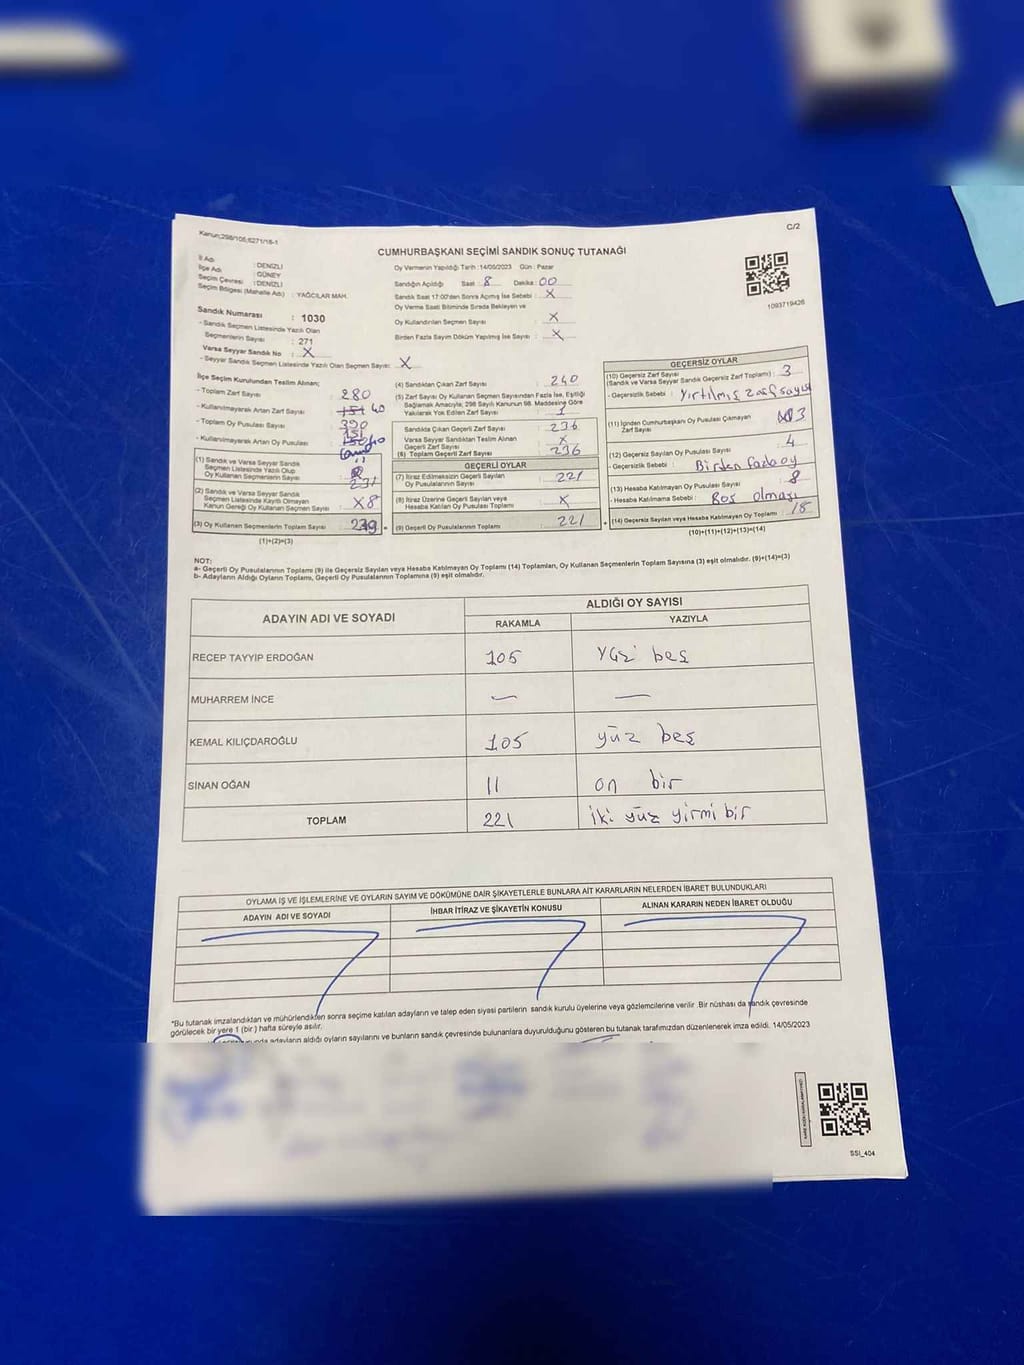 Kanun;298/105;6271/16-1
C/2
CUMHURBAŞKANI SEÇİMİ SANDIK SONUÇ TUTANAĞI
İl Adı : DENİZLİ
İlçe Adı : GÜNEY
Seçim Çevresi : DENİZLİ
Seçim Bölgesi (Mahalle Adı) : YAĞCILAR MAH.
Oy Vermenin Yapıldığı Tarih :14/05/2023 Gün : Pazar
Sandığın Açıldığı Saat : 8 Dakika : 00
Sandık Saat 17:00'den Sonra Açılmış İse Sebebi : X
Oy Verme Saati Bitiminde Sırada Bekleyen ve
Oy Kullandırılan Seçmen Sayısı : X
Birden Fazla Sayım Döküm Yapılmış İse Sayısı : X
1093719426
Sandık Numarası : 1030
- Sandık Seçmen Listesinde Yazılı Olan
Seçmenlerin Sayısı : 271
Varsa Seyyar Sandık No : X
- Seyyar Sandık Seçmen Listesinde Yazılı Olan Seçmen Sayısı : X
İlçe Seçim Kurulundan Teslim Alınan;
- Toplam Zarf Sayısı : 280
- Kullanılmayarak Artan Zarf Sayısı : 151 40
- Toplam Oy Pusulası Sayısı
- Kullanılmayarak Artan Oy Pusulası
(1) Sandık ve Varsa Seyyar Sandık
Seçmen Listesinde Yazılı Olup
Oy Kullanan Seçmenlerin Sayısı 231
(2) Sandık ve Varsa Seyyar Sandık
Seçmen Listesinde Kayıtlı Olmayan
Kanun Gereği Oy Kullanan Seçmen Sayısı : X8
(3) Oy Kullanan Seçmenlerin Toplam Sayısı : 239
(1)+(2)=(3)
(4) Sandıktan Çıkan Zarf Sayısı : 240
(5) Zarf Sayısı Oy Kullanan Seçmen Sayısından Fazla İse, Eşitliği
Sağlamak Amacıyla; 298 Sayılı Kanunun 98. Maddesine Göre
Yakılarak Yok Edilen Zarf Sayısı : 1
Sandıkta Çıkan Geçerli Zarf Sayısı : 236
Varsa Seyyar Sandıktan Teslim Alınan
Geçerli Zarf Sayısı : X
(6) Toplam Geçerli Zarf Sayısı : 236
GEÇERLİ OYLAR
(7) İtiraz Edilmeksizin Geçerli Sayılan
Oy Pusulalarının Sayısı : 221
(8) İtiraz Üzerine Geçerli Sayılan veya
Hesaba Katılan Oy Pusulası Toplamı : X
(9) Geçerli Oy Pusulalarının Toplamı : 221
GEÇERSİZ OYLAR
(10) Geçersiz Zarf Sayısı : 3
(Sandık ve Varsa Seyyar Sandık Geçersiz Zarf Toplamı)
- Geçersizlik Sebebi : Yırtılmış zarf sayısı
(11) İçinden Cumhurbaşkanı Oy Pusulası Çıkmayan
Zarf Sayısı : 3
(12) Geçersiz Sayılan Oy Pusulası Sayısı : 4
- Geçersizlik Sebebi : Birden fazla oy
(13) Hesaba Katılmayan Oy Pusulası Sayısı : 8
- Hesaba Katılmama Sebebi : Boş olması
(14) Geçersiz Sayılan veya Hesaba Katılmayan Oy Toplamı : 18
(10)+(11)+(12)+(13)=(14)
NOT:
a- Geçerli Oy Pusulalarının Toplamı (9) ile Geçersiz Sayılan veya Hesaba Katılmayan Oy Toplamı (14) Toplamları, Oy Kullanan Seçmenlerin Toplam Sayısına (3) eşit olmalıdır. (9)+(14)=(3)
b- Adayların Aldığı Oyların Toplamı, Geçerli Oy Pusulalarının Toplamına (9) eşit olmalıdır.
ADAYIN ADI VE SOYADI
ALDIĞI OY SAYISI
RAKAMLA YAZIYLA
RECEP TAYYİP ERDOĞAN 105 Yüz beş
MUHARREM İNCE — —
KEMAL KILIÇDAROĞLU 105 yüz beş
SİNAN OĞAN 11 on bir
TOPLAM 221 iki yüz yirmi bir
OYLAMA İŞ VE İŞLEMLERİNE VE OYLARIN SAYIM VE DÖKÜMÜNE DAİR ŞİKAYETLERLE BUNLARA AİT KARARLARIN NELERDEN İBARET BULUNDUKLARI
ADAYIN ADI VE SOYADI İHBAR İTİRAZ VE ŞİKAYETİN KONUSU ALINAN KARARIN NEDEN İBARET OLDUĞU
*Bu tutanak imzalandıktan ve mühürlendikten sonra seçime katılan adayların ve talep eden siyasi partilerin sandık kurulu üyelerine veya gözlemcilerine verilir .Bir nüshası da sandık çevresinde
görülecek bir yere 1 (bir ) hafta süreyle asılır.
adayların aldığı oyların sayılarını ve bunların sandık çevresinde bulunanlara duyurulduğunu gösteren bu tutanak tarafımızdan düzenlenerek imza edildi. 14/05/2023
SSI_404